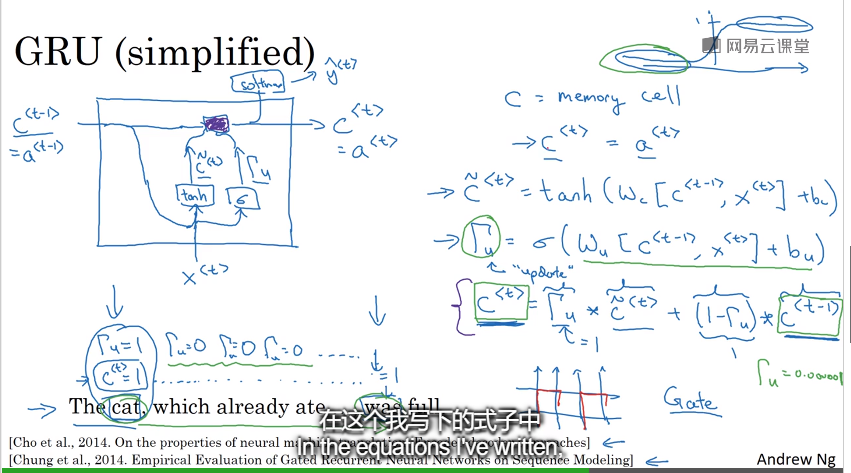 GRU (simplified)
网易云课堂
1
softmax
ŷ<t>
c<t-1>
= a<t-1>
c<t>
= a<t>
c̃<t>
Γu
tanh
σ
x<t>
C = memory cell
→ c<t> = a<t>
→ c̃<t> = tanh(Wc[c<t-1>, x<t>] + bc)
→ Γu = σ(Wu[c<t-1>, x<t>] + bu)
"update"
c<t> = Γu * c̃<t> + (1-Γu) * c<t-1>
= 1
1
Γu = 0.000001
Γu=1 Γu=0 Γu=0 Γu=0 .....
→ c<t>=1 ............ = 1
Gate
→ The cat, which already ate, ... was full.
在这个我写下的式子中
in the equations I've written.
[Cho et al., 2014. On the properties of neural machine
[Chung et al., 2014. Empirical Evaluation of Gated Recurrent Neural Networks on Sequence Modeling] ←
Andrew Ng